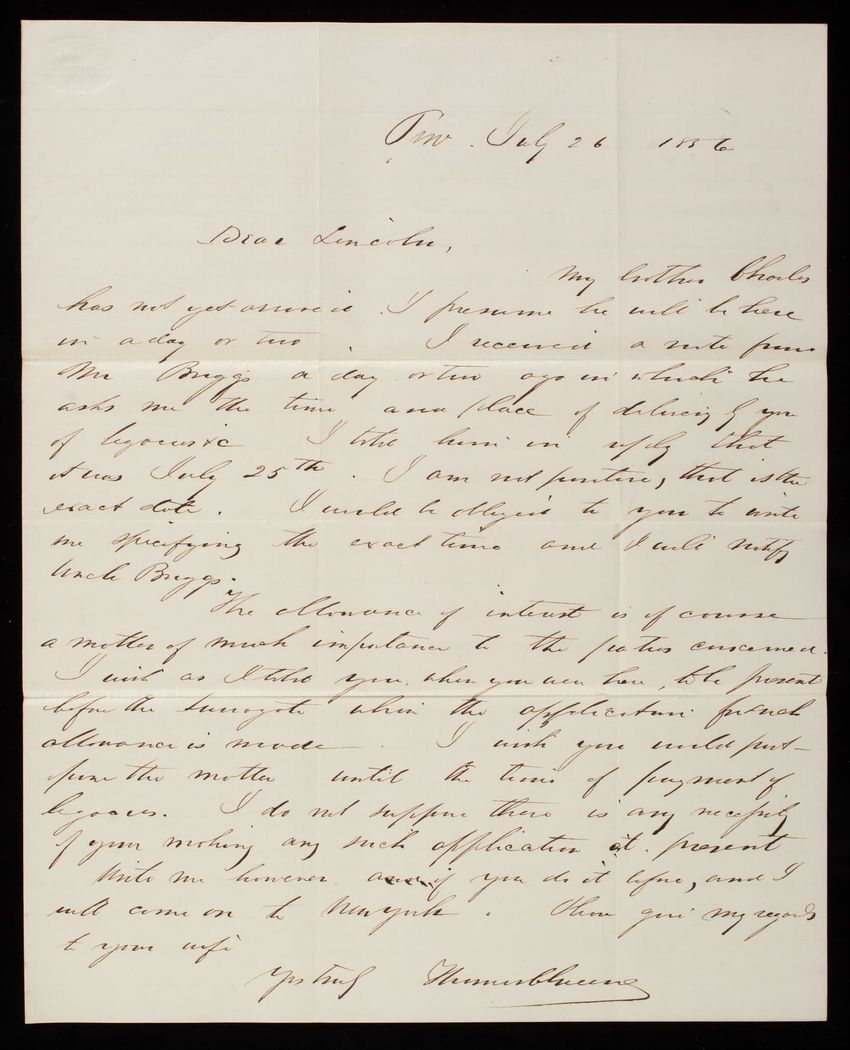 Prov. July 26 1856
Dear Lincoln,
My brother Charles
has not yet arrived. I presume he will be here
in a day or two. I received a note from
Mr Briggs a day or two ago in which he
asks me the time and place of delivery by you
of legacies &c I told him in reply that
it was July 25th. I am not positive, that is the
exact date. I would be obliged to you to write
me specifying the exact time and I will notify
Uncle Briggs.
The allowance of interest is of course
a matter of much importance to the parties concerned.
I wish as I told you when you were here, to be present
before the surrogate when the application for such
allowance is made. I wish you would post-
pone the matter until the time of payment of
legacies. I do not suppose there is any necessity
of your making any such application at present
Write me however if you do it before, and I
will come on to New York. Please give my regards
to your wife
Yrs truly Thomas C Greene